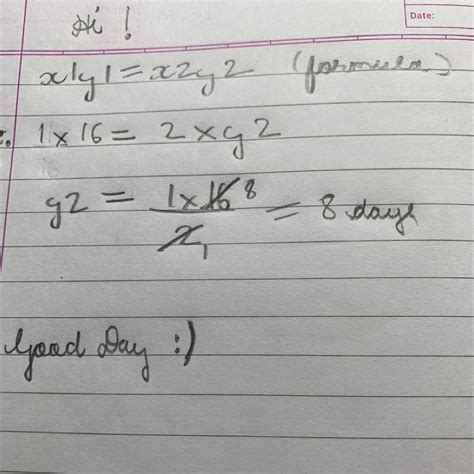 Date:
Hi !
x1y1 = x2y2 (formula)
1 x 16 = 2 x y2
y2 = 1 x 16 8 / 2 1 = 8 days
Good Day :)